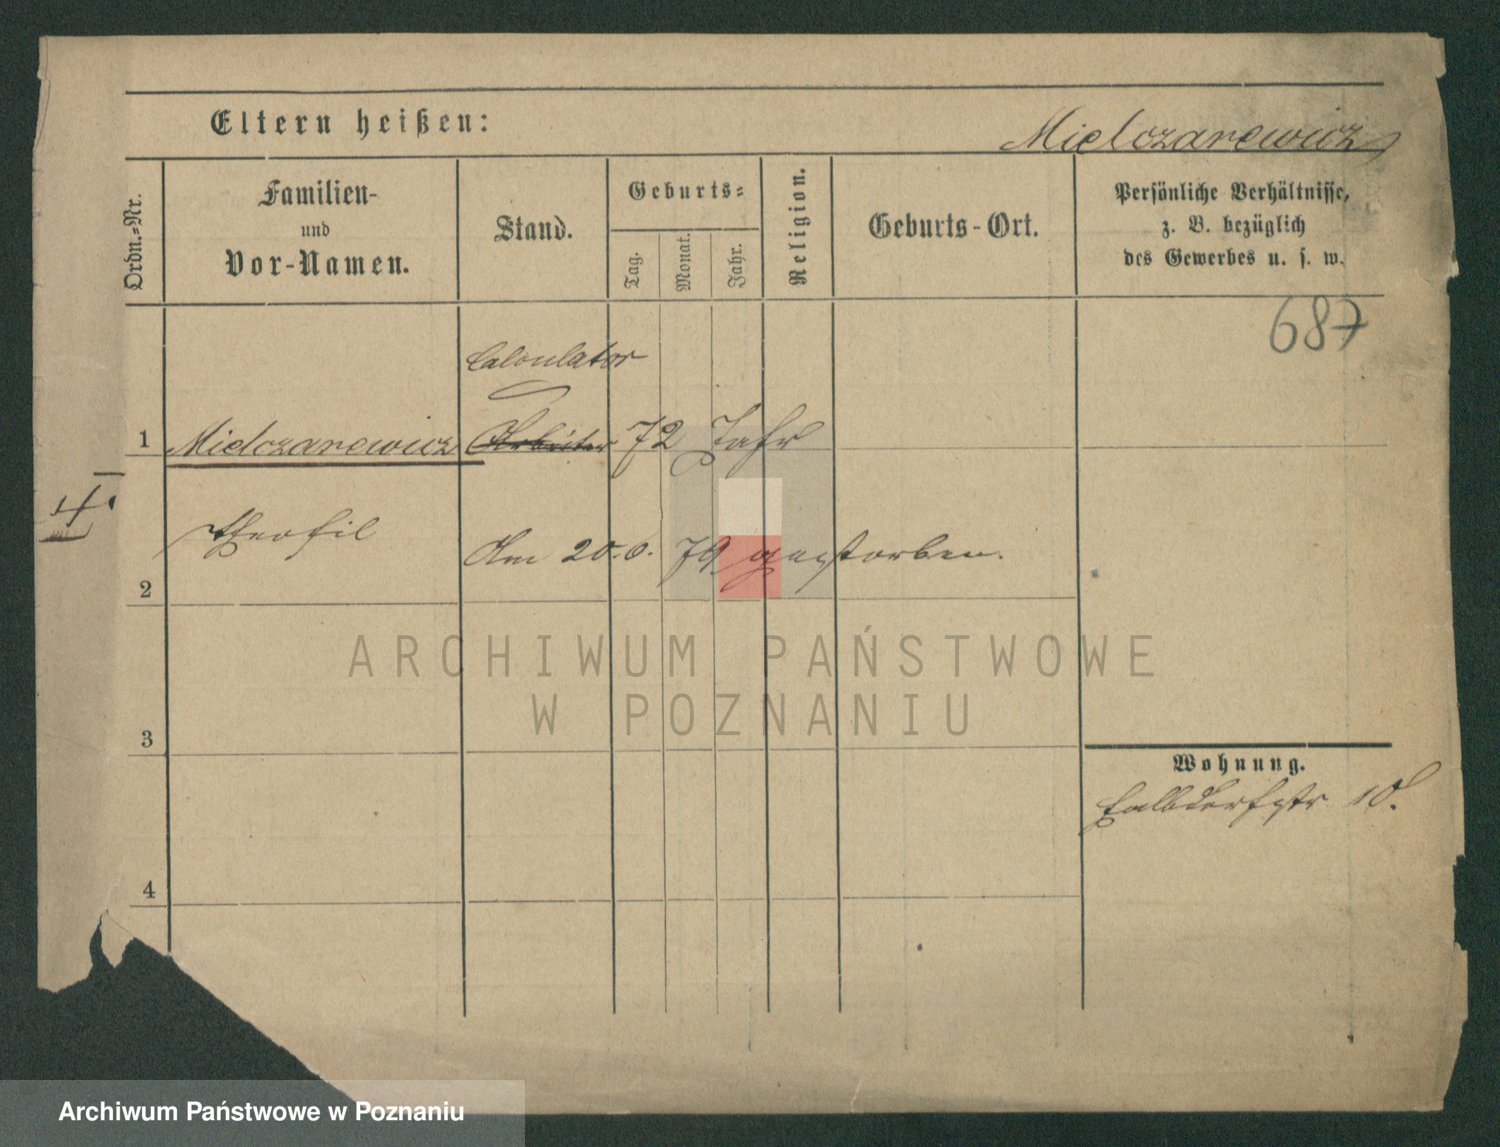 Eltern heißen:
Mielczarewicz
Ordn.=Nr.
Familien-
und
Vor-Namen.
Stand.
Geburts=
Tag.
Monat.
Jahr.
Religion.
Geburts-Ort.
Persönliche Verhältnisse,
z. B. bezüglich
des Gewerbes u. s. w.
687
Calculator
1 Mielczarewicz Arbeiter 72 Jahr
4.
Theofil
Am 20.6. 79 gestorben.
2
ARCHIWUM PAŃSTWOWE
W POZNANIU
3
Wohnung.
Halbdorfstr 10.
4
Archiwum Państwowe w Poznaniu